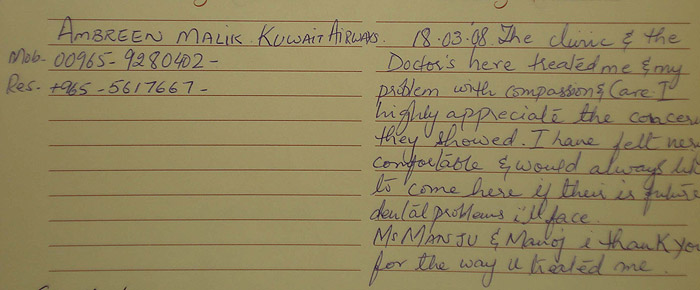 AMBREEN MALIK KUWAIT AIRWAYS.
Mob. 00965-9280402-
Res. +965-5617667-
18.03.'08. The clinic & the
Doctor's here treated me & my
problem with compassion & Care. I
highly appreciate the concern
they showed. I have felt very
comfortable & would always like
to come here if their is future
dental problems i'll face.
Ms MANJU & Manoj i thank you
for the way u treated me.